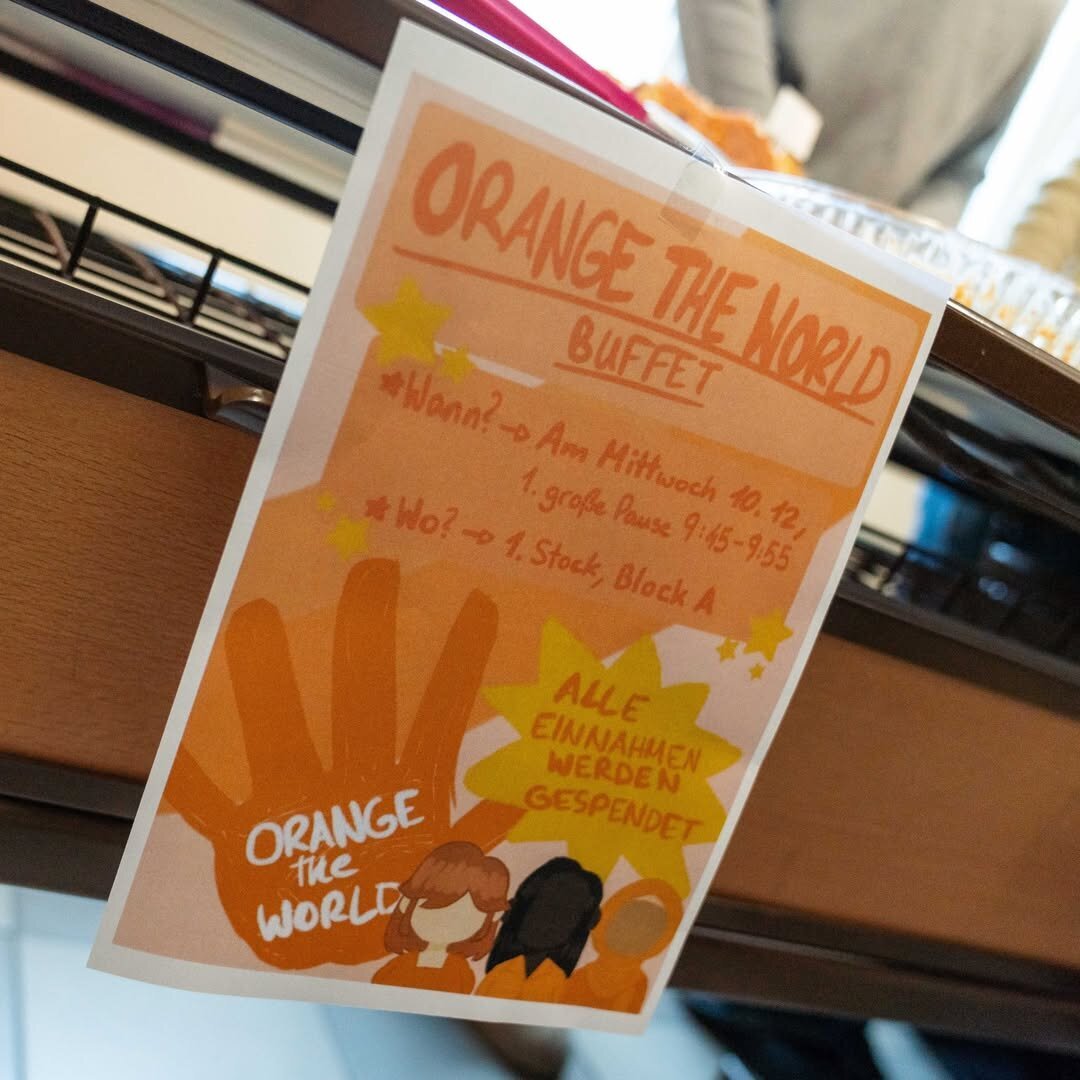 ORANGE THE WORLD
BUFFET
*Wann? → Am Mittwoch 10.12,
1. große Pause 9:45-9:55
*Wo? → 1. Stock, Block A
ALLE
EINNAHMEN
WERDEN
GESPENDET
ORANGE
the
WORLD